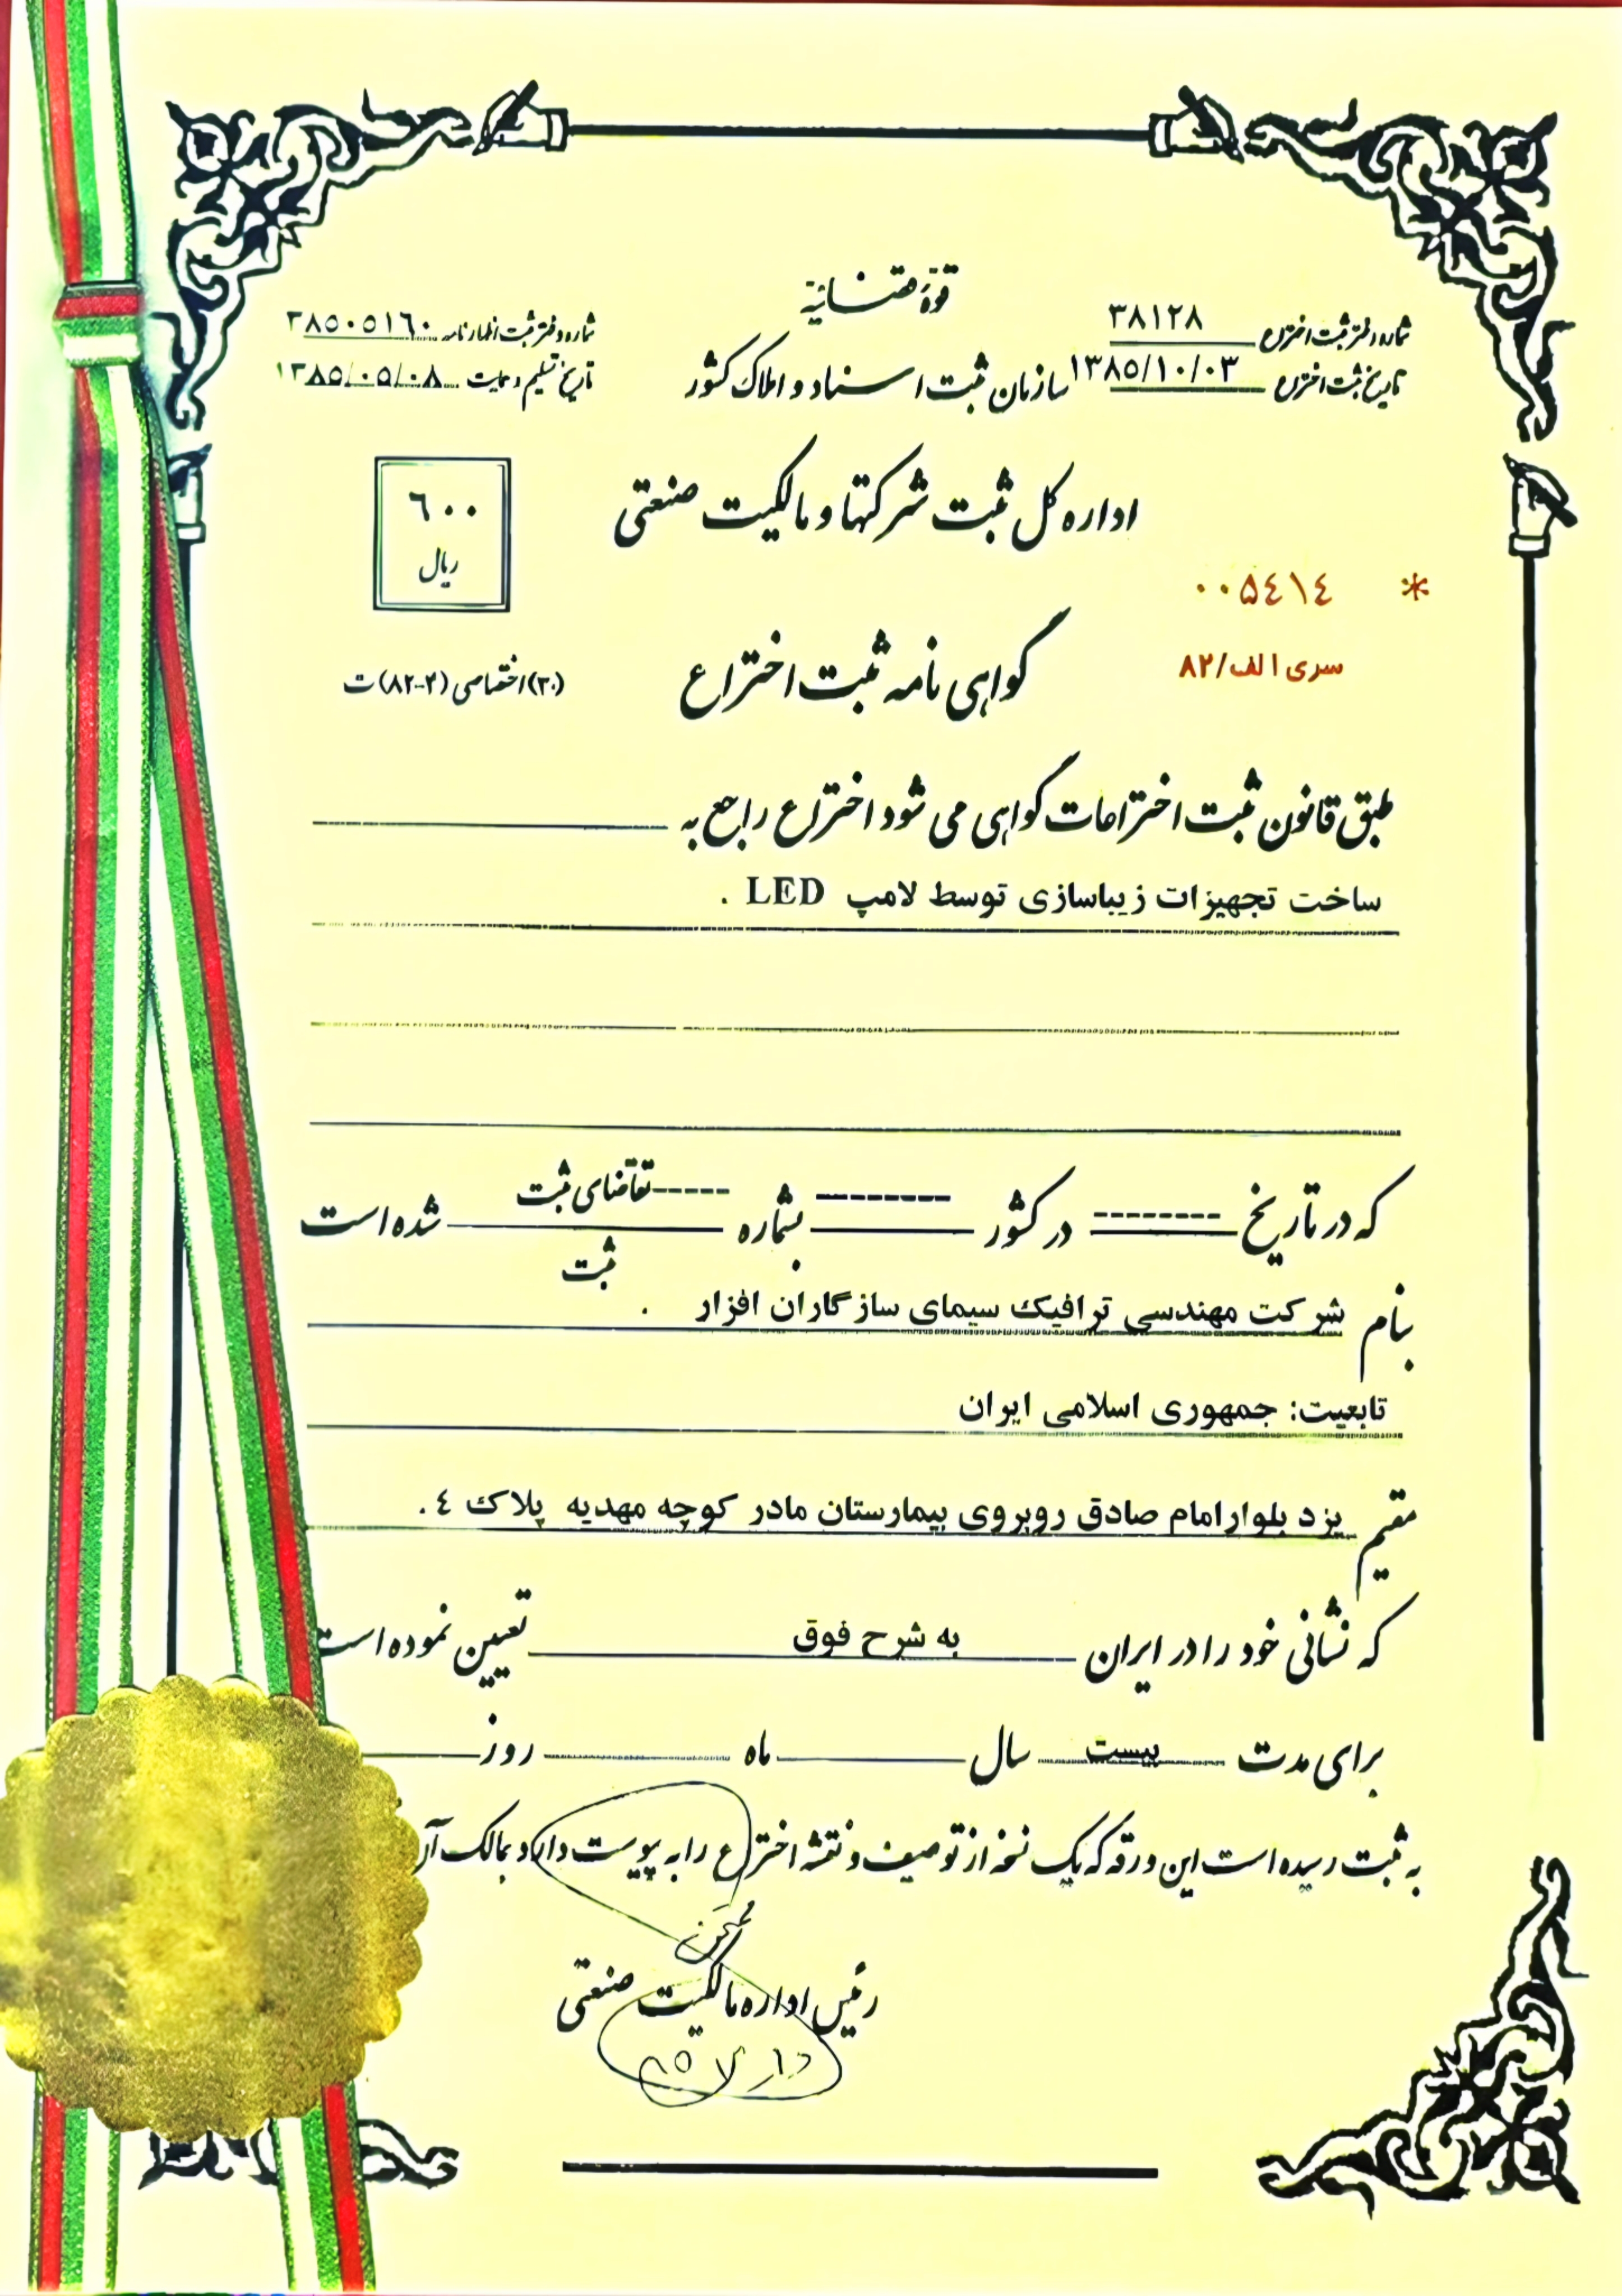 قوهٔ قضائیه
شماره دفتر ثبت اختراع ۳۸۱۲۸
شماره دفتر ثبت اظهارنامه ۳۸۵۰۵۱۶۰
تاریخ ثبت اختراع ۱۳۸۵/۱۰/۰۳
سازمان ثبت اسناد و املاک کشور
تاریخ تسلیم و حمایت ۱۳۸۵/۰۵/۰۸
اداره کل ثبت شرکتها و مالکیت صنعتی
۶۰۰
ریال
* ۰۰۵٤۱٤
سری الف/۸۲
گواهی نامه ثبت اختراع
(۳۰) اختصاصی (۲-۸۲) ت
طبق قانون ثبت اختراعات گواهی می شود اختراع راجع به
ساخت تجهیزات زیباسازی توسط لامپ LED .
که در تاریخ -------- در کشور -------- بشماره ----- تقاضای ثبت شده است
ثبت
بنام شرکت مهندسی ترافیک سیمای سازگاران افزار .
تابعیت: جمهوری اسلامی ایران
مقیم یزد بلوار امام صادق روبروی بیمارستان مادر کوچه مهدیه پلاک ٤ .
که نشانی خود را در ایران به شرح فوق تعیین نموده است
برای مدت بیست سال ماه روز
به ثبت رسیده است این ورقه که یک نسخه از توصیف و نقشه اختراع را به پیوست دارد بمالک آن
رئیس اداره مالکیت صنعتی